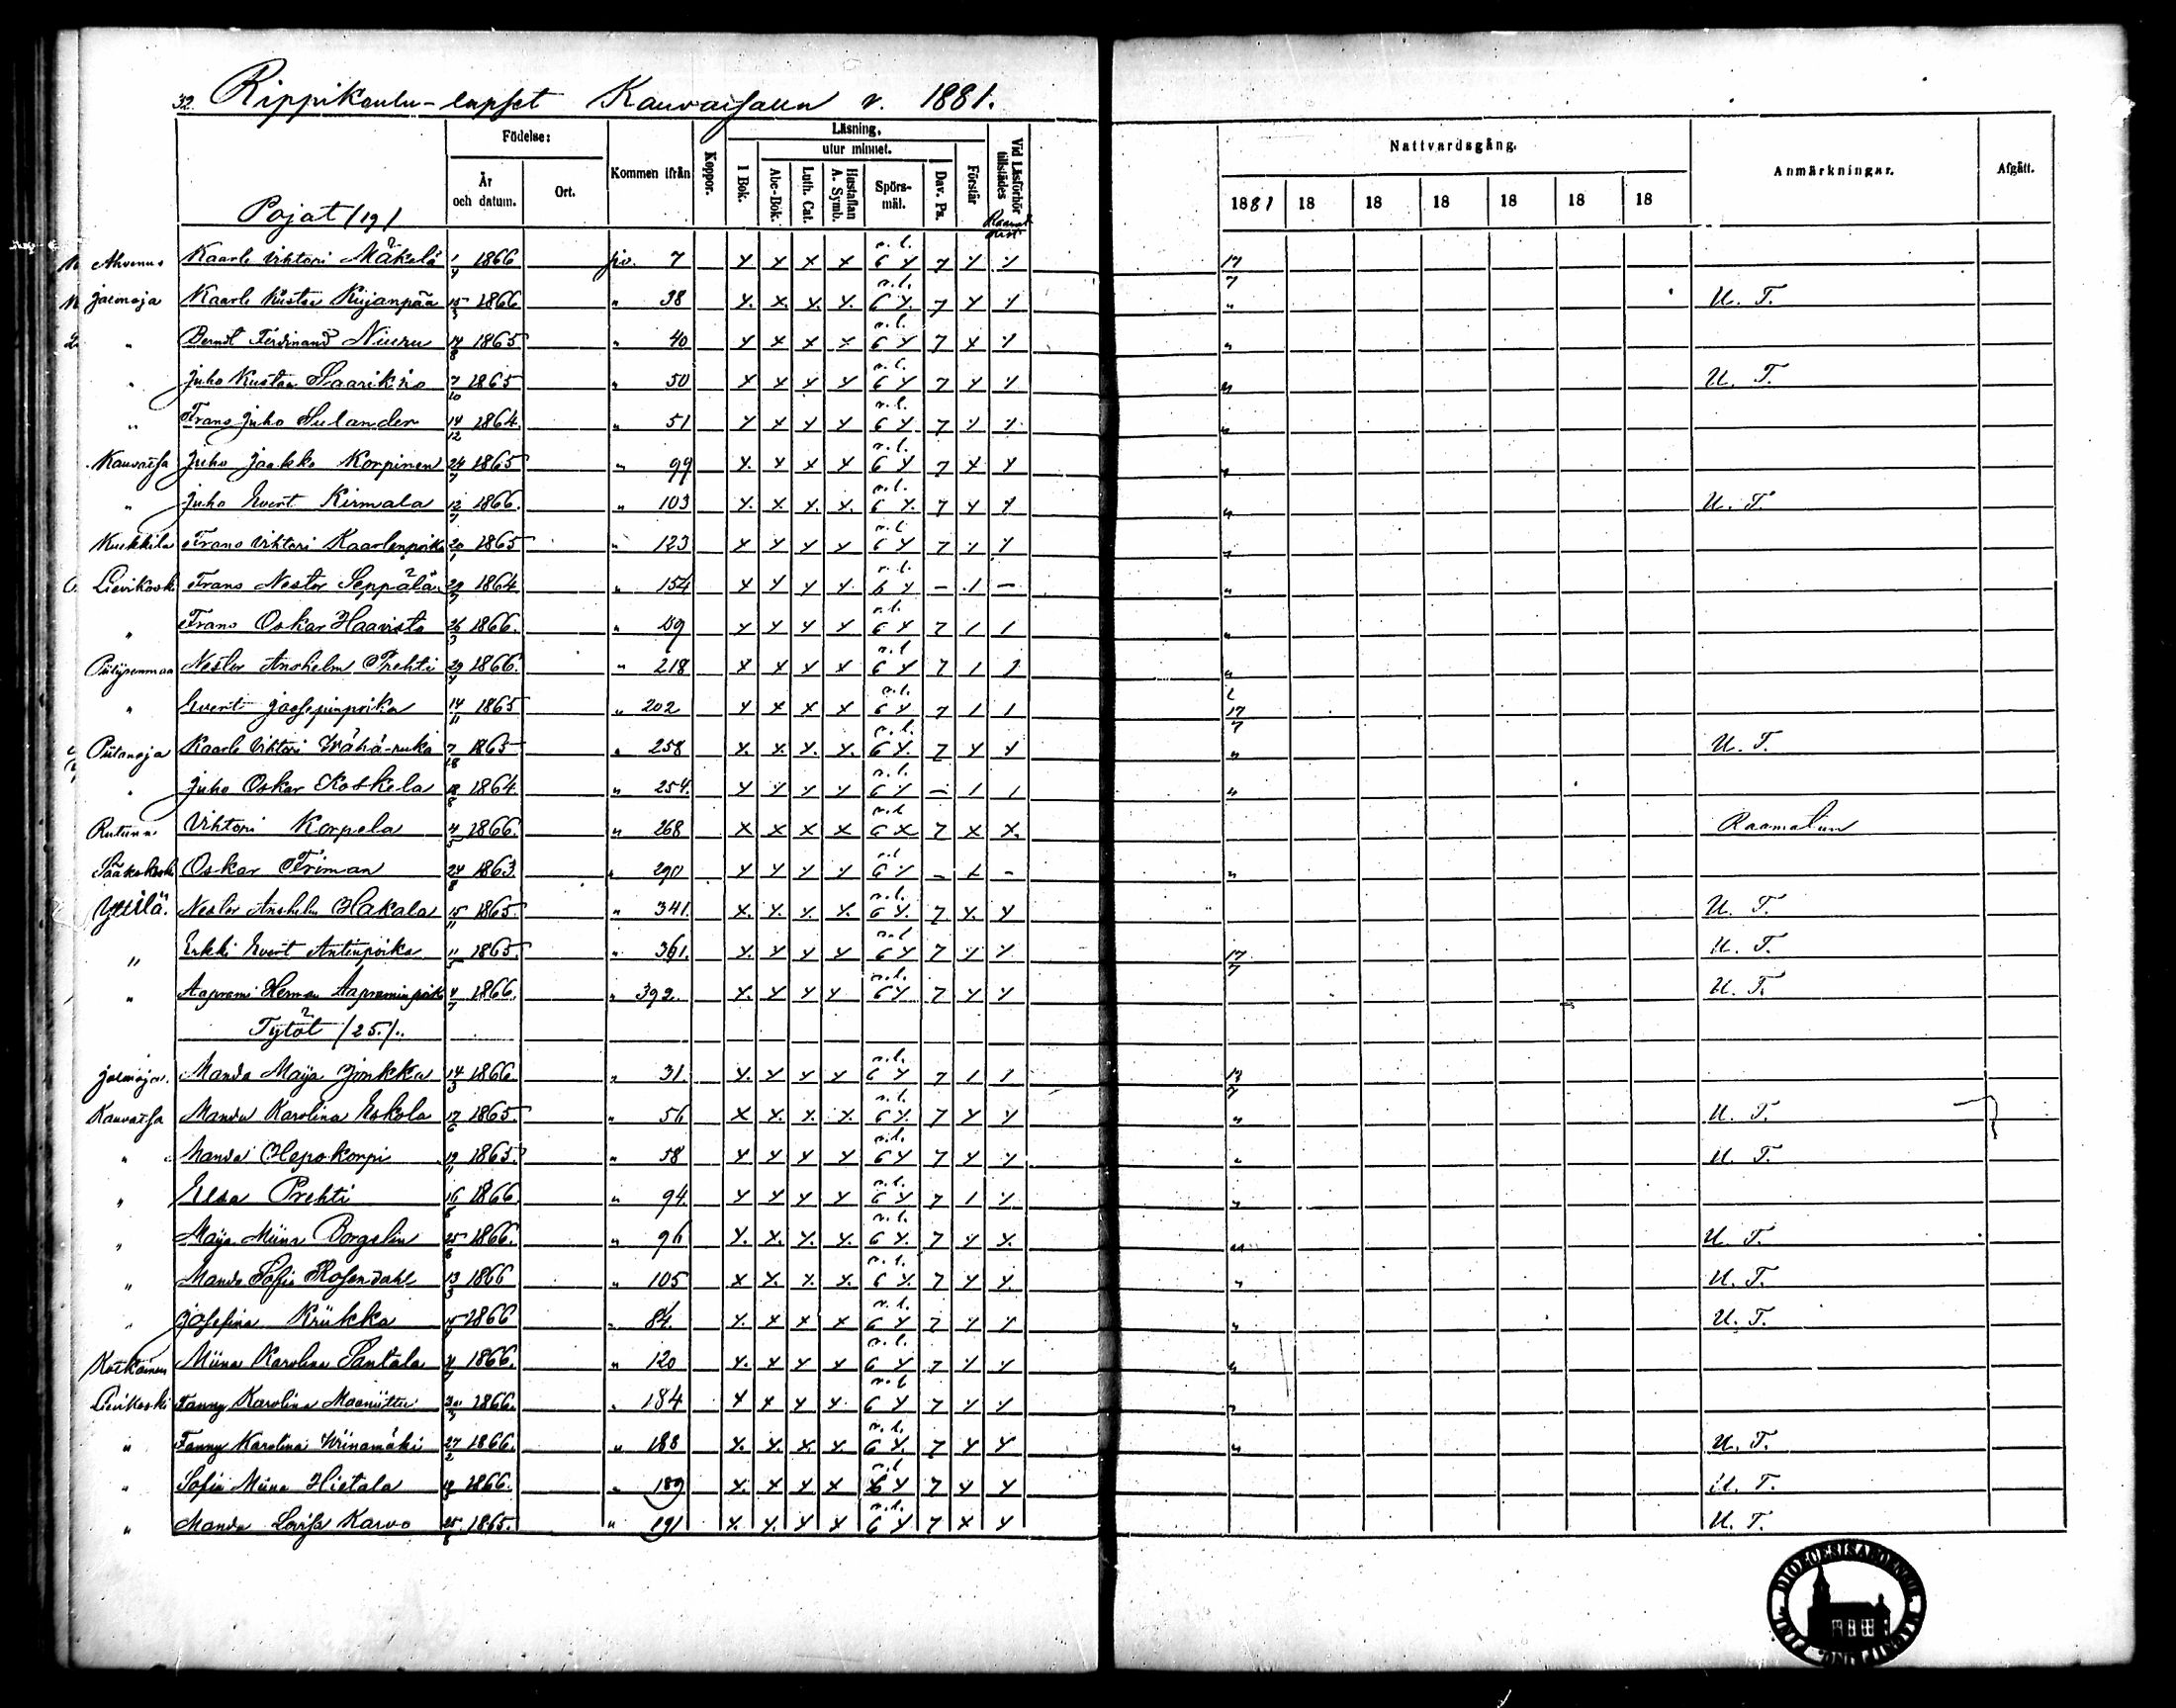 32. Rippikoulu-lapset Kauvaisssa v. 1881.
Födelse: Kommen ifrån Koppor. Läsning. Vid Läsförhör tillstädes Nattvardsgång. Anmärkningar. Afgått.
År och datum. Ort. I Bok. utur minnet. Förstår
Abc-Bok. Luth. Cat. Hustaflan A. Symb. Spörsmål. Dav. Ps.
1881 18 18 18 18 18 18
Pojat /19/
Ahvenus Kaarle Vihtori Mäkelä 1/4 1866 pv. 7 x x x x n.l. 6 x 7 x x 17/7
Jalonoja Kaarle Kustaa Kujanpää 15/3 1866 " 38 x. x. x. x. n.l. 6 x. 7 x x " U. T.
" Berndt Ferdinand Niuru 14/8 1865 " 40 x x x x n.l. 6 x 7 x x "
" Juho Kustaa Saarikko 7/10 1865 " 50 x x x x n.l. 6 x 7 x x " U. T.
" Frans Juho Sulander 14/12 1864 " 51 x x x x n.l. 6 x 7 x x "
Kauvatsa Juho Jaakko Korpinen 24/7 1865 " 99 x. x x x n.l. 6 x 7 x x "
" Juho Evert Kirmala 12/7 1866. " 103 x. x x. x. n.l. 6 x. 7 x x " U. T.
Kuckkila Frans Vihtori Kaarlenpoika 20/1 1865 " 123 x x x x n.l. 6 x 7 x x "
Lievikosk. Frans Nestor Seppälä 29/7 1864 " 154 x x x x n.l. 6 x – 1 – "
" Frans Oskar Haavisto 26/3 1866. " 159 x x x x n.l. 6 x 7 1 1 "
Nestor Anshelm Prehti 29/4 1866. " 218 x x x x n.l. 6 x 7 1 1 "
" Evert Joosepinpoika 14/11 1865 " 202 x x x x n.l. 6 x 7 1 1 17/7
Piilanoja Kaarle Vihtori Wähä-ruka 1865 " 258 x. x. x. x. n.l. 6 x. 7 x x " U. T.
" Juho Oskar Koskela 18/8 1864 " 254. x x x x n.l. 6 x – 1 1 "
Vihtori Korpela 4/5 1866. " 268 x x x x n.l. 6 x 7 x x. Raamatun
Sääkskoski Oskar Friman 24/8 1863. " 290 x x x x n.l. 6 x – 1 – "
Yttilä. Nestor Anshelm Hakala 15/11 1865. " 341. x. x. x. x. n.l. 6 x. 7 x. x U. T.
" Erkki Evert Antinpoika 11/5 1865. " 361. x. x x x n.l. 6 x 7 x x 17/7 U. T.
" Aaprami Herman Aapraminpoik 4/7 1866. " 392. x. x x x n.l. 6 x 7 x x U. T.
Tytöt /25/.
Jalonoja. Manda Maija Jönkka 14/3 1866 " 31. x. x x x n.l. 6 x 7 1 1 17/7
Kauvatsa Manda Karolina Eskola 17/6 1865. " 56 x x. x. x. n.l. 6 x. 7 x x " U. T.
" Manda Hepokorpi 19/11 1865. " 58 x x x x n.l. 6 x 7 x x " U. T.
" Elsa Prehti 16/6 1866. " 94. x x x x n.l. 6 x 7 1 x "
" Maija Miina Borgelin 25/8 1866. " 96 x. x. x. x. n.l. 6 x. 7 x x. " U. T.
" Manda Sofia Rosendahl 13/3 1866 " 105 x x. x. x. n.l. 6 x. 7 x x. " U. T.
" Josefina Kriikka 1866 " 84. x. x x x n.l. 6 x 7 x x " U. T.
Miina Karolina Santala 1866. " 120 x. x x x n.l. 6 x 7 x x "
Lievikoski Fanny Karolina Maaniittu 1866. " 184 x x x x n.l. 6 x 7 x x "
" Fanny Karolina Wiinamäki 27/2 1866. " 188 x. x. x. x. n.l. 6 x. 7 x x " U. T.
" Sofia Miina Hietala 1866. " 189 x. x x x n.l. 6 x 7 x x U. T.
" Manda Lovisa Karvo 25/8 1865. " 191 x. x. x x n.l. 6 x 7 x x U. T.